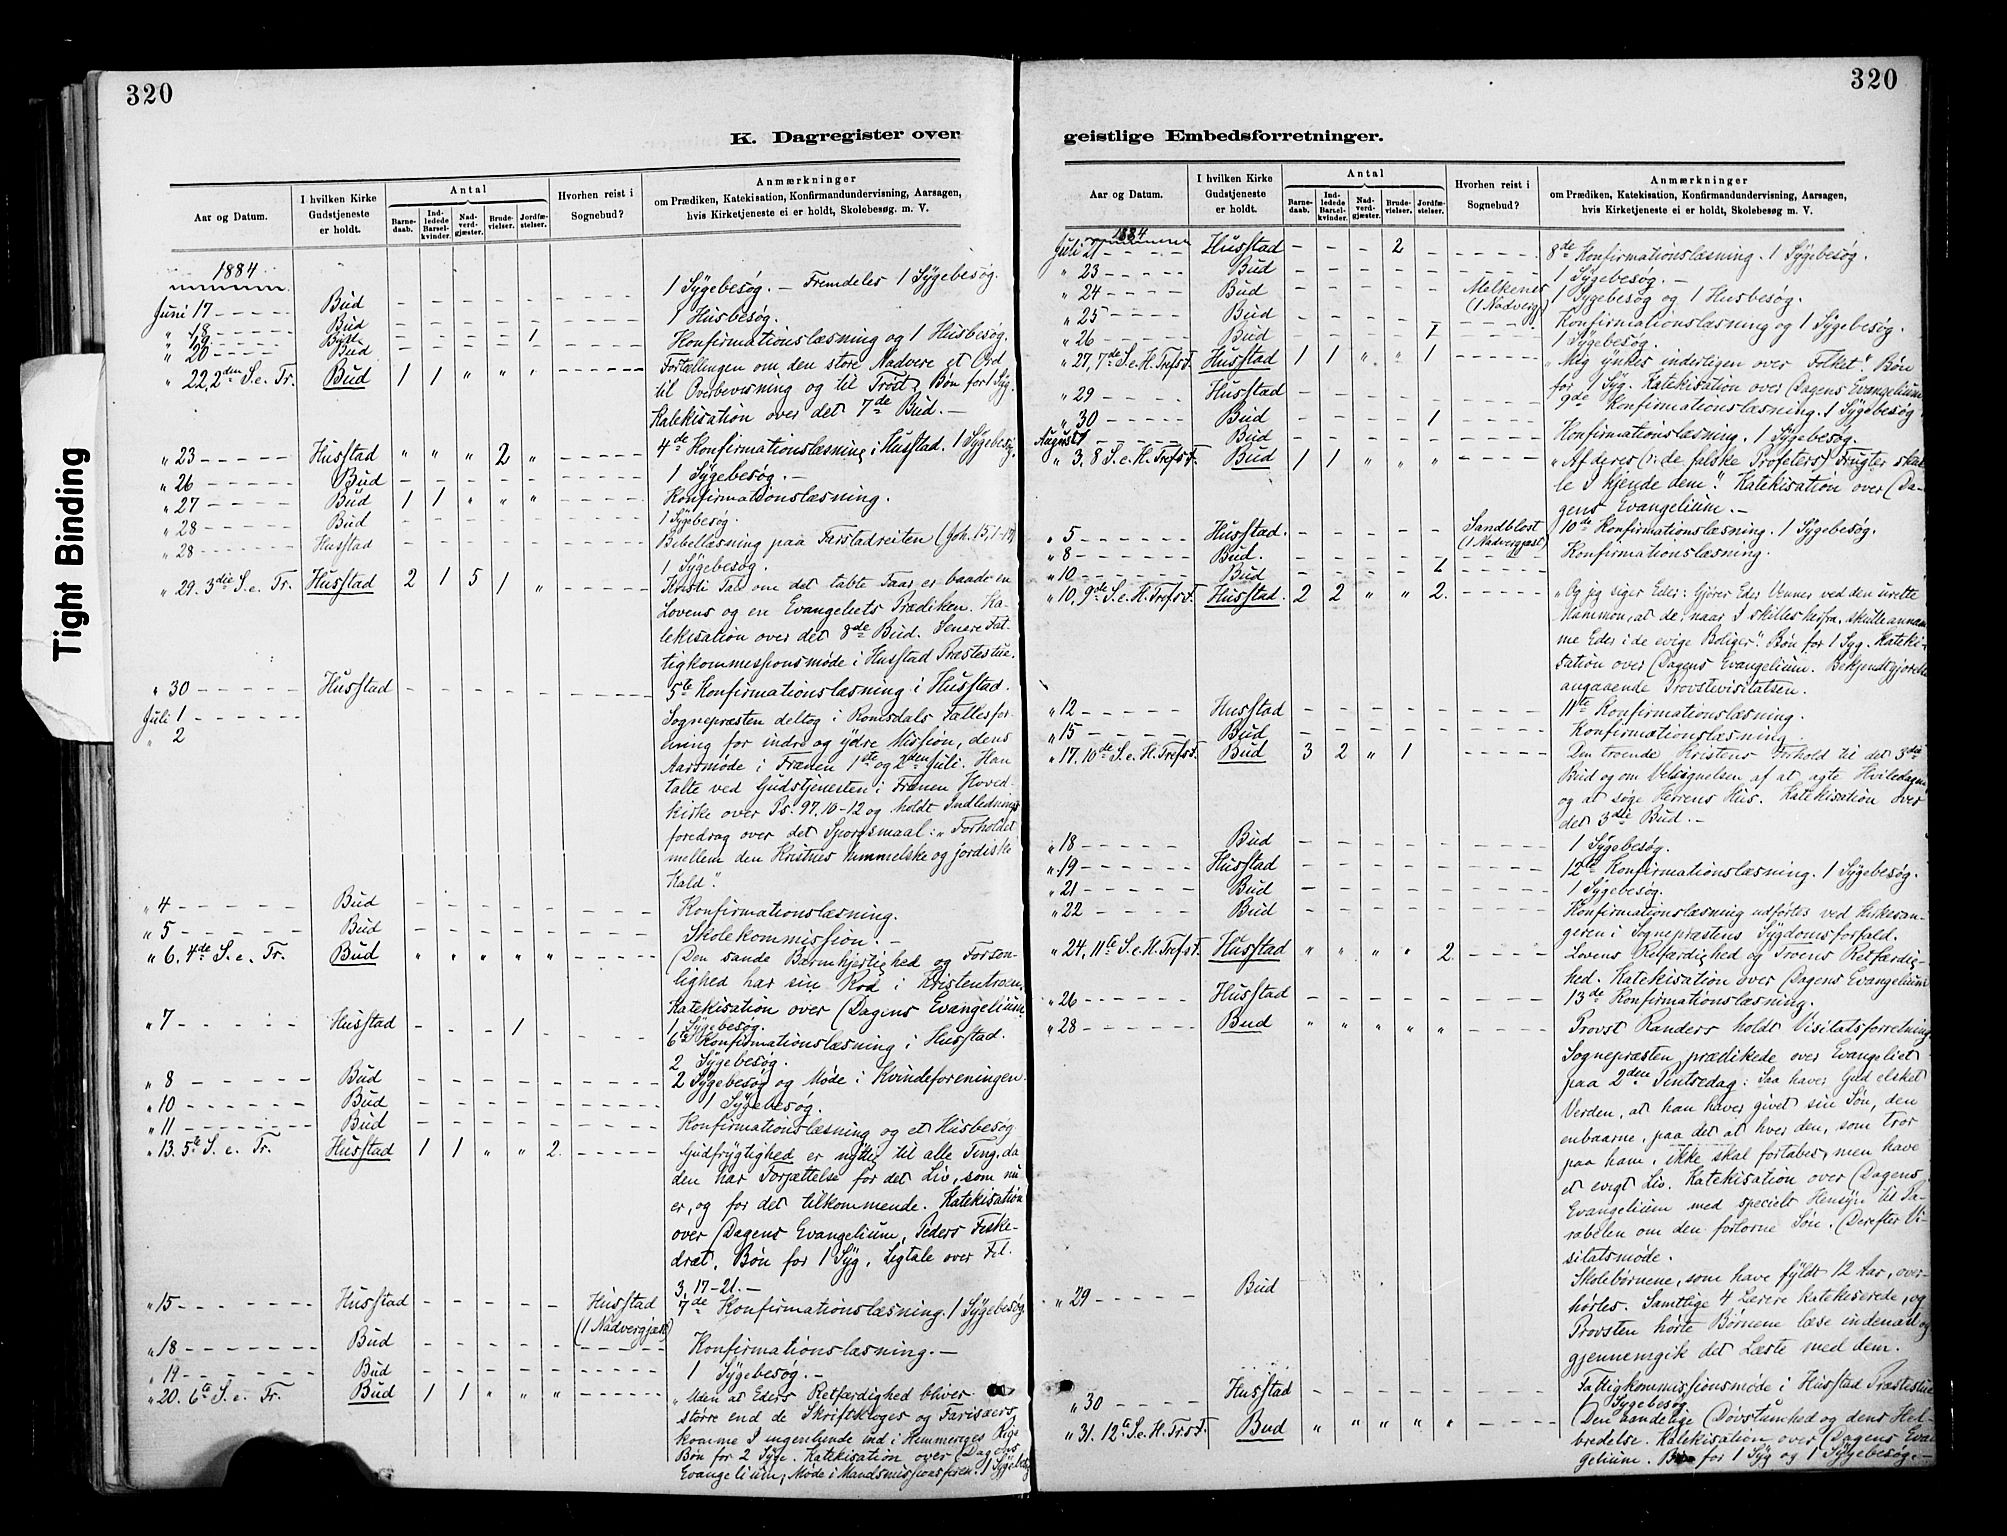 320
K. Dagregister over
Aar og Datum. | I hvilken Kirke Gudstjeneste er holdt. | Antal | Barnedaab. | Indledede Barselkvinder. | Nadverdgjæster. | Brudevielser. | Jordfæstelser. | Hvorhen reist i Sognebud? | Anmærkninger om Prædiken, Katekisation, Konfirmandundervisning, Aarsagen, hvis Kirketjeneste ei er holdt, Skolebesøg. m. V.
1884
Juni 17 Bud - - - - - 1 Sygebesøg. — Fremdeles 1 Sygebesøg.
" 18 Bud - - - - - 1 Husbesøg.
" 19 - - - - 1
" 20 Bud Konfirmationslæsning og 1 Husbesøg.
" 22, 2den S. e. Tr. Bud 1 1 " " " Fortællingen om den store Nadvere et Ord
til Overbevisning og til Trøst. Bøn for 1 Syg.
Katekisation over det 7de Bud. —
" 23 Husstad " " " 2 " 4de Konfirmationslæsning i Husstad. 1 Sygebesøg.
" 26 Bud - - - - - 1 Sygebesøg. —
" 27 Bud 1 1 " " " Konfirmationslæsning.
" 28 Bud - - - - - 1 Sygebesøg.
" 28 Husstad Bibellæsning paa Farstadreiten (Joh. 15,1-14)
1 Sygebesøg.
" 29. 3die S. e. Tr. Husstad 2 1 5 1 " Kristi Tale om det tabte Faar er baade en
Lovens og en Evangeliets Prædiken. Ka-
tekisation over det 8de Bud. Senere Fat-
tigkommissionsmøde i Husstad Præstestue.
" 30 Husstad - - - - - 5te Konfirmationslæsning i Husstad.
Juli 1 Sognepræsten deltog i Romsdals Fællesfor-
" 2 ening for indre og ydre Mission, dens
Aarsmøde i Frænen 1ste og 2den Juli. Han
talte ved Gudstjenesten i Frænen Hoved-
kirke over Ps. 97, 10-12 og holdt Indlednings-
foredrag over det Spørgsmaal: "Forholdet
mellem den Kristnes himmelske og jordiske
Kald".
" 4 Bud - - - - - Konfirmationslæsning.
" 5 Bud - - - - - Skolekommission. —
" 6. 4de S. e. Tr. Bud " " " " " Den sande Barmhjertighed og Forson-
lighed har sin Rod i Kristentroen.
Katekisation over Dagens Evangelium.
" 7 Husstad - - - 1 - 1 Sygebesøg.
6te Konfirmationslæsning i Husstad.
2 Sygebesøg.
" 8 Bud - - - - - 2 Sygebesøg og Møde i Kvindeforeningen.
" 10 Bud - - - - - 1 Sygebesøg.
" 11 Bud - - - - - Konfirmationslæsning og et Husbesøg
" 13. 5te S. e. Tr. Husstad 1 1 " " 2. Gudfrygtighed er nyttig til alle Ting, da
den har Forjættelse for det Liv, som nu
er, og for det tilkommende. Katekisation
over Dagens Evangelium, Peders Fiske-
dræt. Bøn for 1 Syg. Ligtale over Fil.
3, 17-21. —
" 15 Husstad - - - - - Husstad (1 Nadvergjæst) 7de Konfirmationslæsning. 1 Sygebesøg
" 18 Bud - - - - - Konfirmationslæsning. —
" 19 Bud - - - - - 1 Sygebesøg. —
" 20. 6te S. e. Tr. Bud 1 1 " " " "Uden at Eders Retfærdighed bliver
større end de Skriftkloges og Farisæers
komme I ingenlunde ind i Himmeriges Rige
Bøn for 2 Syge. Katekisation over Dagens
Evangelium, Møde i Mandsmissionsforen. 1 Sygebesøg
320
geistlige Embedsforretninger.
Aar og Datum. | I hvilken Kirke Gudstjeneste er holdt. | Antal | Barnedaab. | Indledede Barselkvinder. | Nadverdgjæster. | Brudevielser. | Jordfæstelser. | Hvorhen reist i Sognebud? | Anmærkninger om Prædiken, Katekisation, Konfirmandundervisning, Aarsagen, hvis Kirketjeneste ei er holdt, Skolebesøg. m. V.
1884
Juli 21 Husstad - - - 2 - 8de Konfirmationslæsning. 1 Sygebesøg.
" 23 Bud - - - - - 1 Sygebesøg. —
" 24 Bud - - - - - (1 Nadverg) 1 Sygebesøg og 1 Husbesøg.
" 25 Bud - - - - - Konfirmationslæsning og 1 Sygebesøg.
" 26 Bud - - - - 1 1 Sygebesøg.
" 27, 7de S. e. H. Trefs.F. Husstad 1 1 " " 1 "Mig ynkes inderligen over Folket." Bøn
for 1 Syg. Katekisation over Dagens Evangelium
" 29 Husstad 9de Konfirmationslæsning. 1 Sygebesøg
" 30 Bud - - - - 1 Konfirmationslæsning. 1 Sygebesøg.
August 1 Bud
" 3. 8 S. e. H. Trefs.F. Bud 1 1 " " " "Af deres (: de falske Profeters) Frugter skul-
le I kjende dem." Katekisation over Da-
gens Evangelium. —
" 5 Husstad. - - - - - Sandblost (1 Nadvergjæst) 10de Konfirmationslæsning. 1 Sygebesøg.
" 8 Bud. - - - - - Konfirmationslæsning.
" 10 Bud - - - - 1
" 10, 9de S. e. H. Trefs.F. Husstad. 2 2 " " 2. "Og jeg siger Eder: Gjører Eder Venner ved den urette
Mammon, at de, naar I skilles herfra, skulle annam-
me Eder i de evige Boliger". Bøn for 1 Syg. Kateki-
sation over Dagens Evangelium. Bekjendtgjørelse
angaaende Provstevisitatsen.
" 12 Husstad - - - - - 11te Konfirmationslæsning.
" 15 Bud - - - - - Konfirmationslæsning.
" 17. 10de S. e. H. Trefs.F. Bud 3 2 " 1 Den troende Kristens Forhold til det 3die
Bud og om Velsignelsen af at agte Hviledagen
og at søge Herrens Hus. Katekisation over
det 3die Bud. —
" 18 Bud - - - - - 1 Sygebesøg.
" 19 Husstad - - - - - 12te Konfirmationslæsning. 1 Sygebesøg.
" 21 Bud - - - - - 1 Sygebesøg.
" 22 Bud - - - - - Konfirmationslæsning udførtes ved Kirkesan-
geren i Sognepræstens Sygdomsforfald.
" 24, 11te S. e. H. Trefs.F. Husstad " " " " 2 Lovens Retfærdighed og Troens Retfærdig-
hed. Katekisation over Dagens Evangelium
" 26 Husstad - - - - - 13de Konfirmationslæsning.
" 28 Bud " " " " " Provst Randers holdt Visitatsforretning
Sognepræsten prædikede over Evangeliet
paa 2den Pintsedag: Saa haver Gud elsket
Verden, at han haver givet sin Søn, den
enbaarne, paa det at hver den, som tror
paa ham, ikke skal fortabes, men have
et evigt Liv. Katekisation over Dagens
Evangelium med specielt Hensyn til Pa-
rabelen om den fortorne Søn. Derefter Vi-
sitatsmøde.
" 29 Bud Skolebørnene, som have fyldt 12 Aar, over-
hørtes. Samtlige 4 Lærere katekiserede, og
Provsten hørte Børnene læse indenad og
gjennemgik det Læste med dem.
Fattigkommissionsmøde i Husstad Præstestue
" 30 Husstad - - - - - Sygebesøg.
" 31. 12te S. e. H. Tr.s.F. Bud " " " " " Den aandelige Døvstumhed og dens Hel-
bredelse. Katekisation over Dagens Evan-
gelium. Bøn for 1 Syg og 1 Sygebesøg. —
Tight Binding